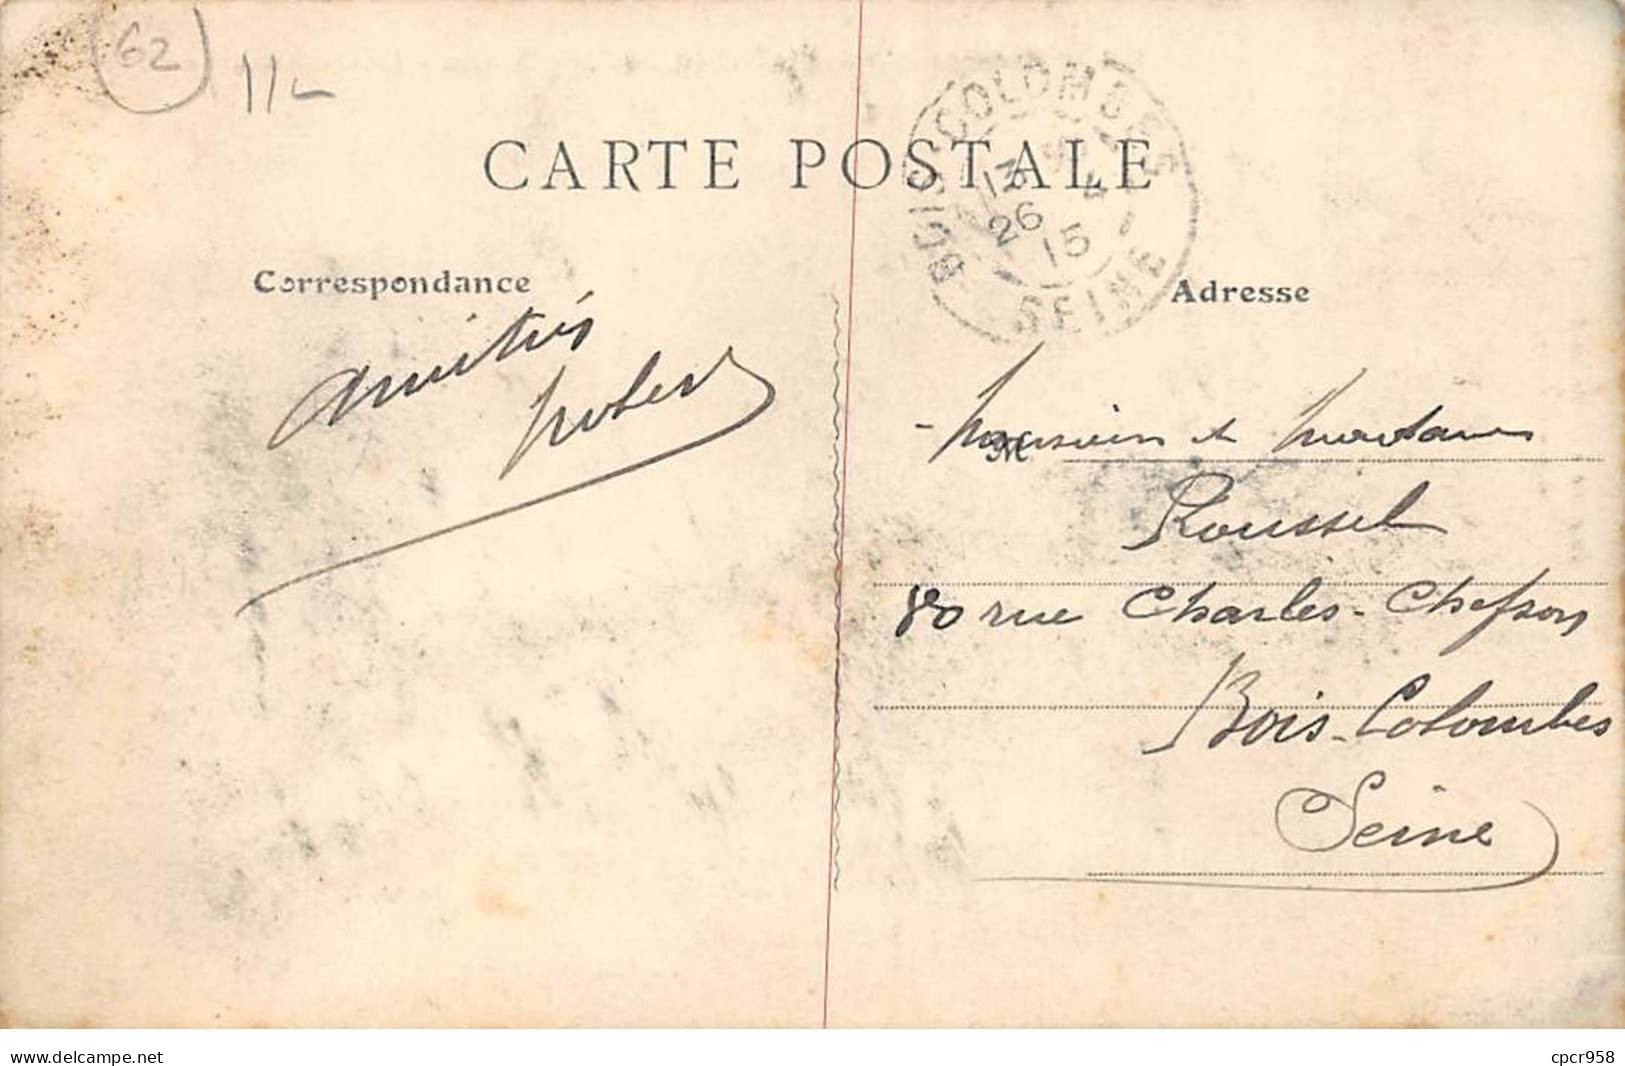 62
11-
CARTE POSTALE
BOIS-COLOMBES
13
26 4
15
SEINE
Correspondance
Adresse
Amitiés
Robert
- Monsieur et Madame
M
Roussel
80 rue Charles-Chefson
Bois-Colombes
Seine
www.delcampe.net
cpcr958